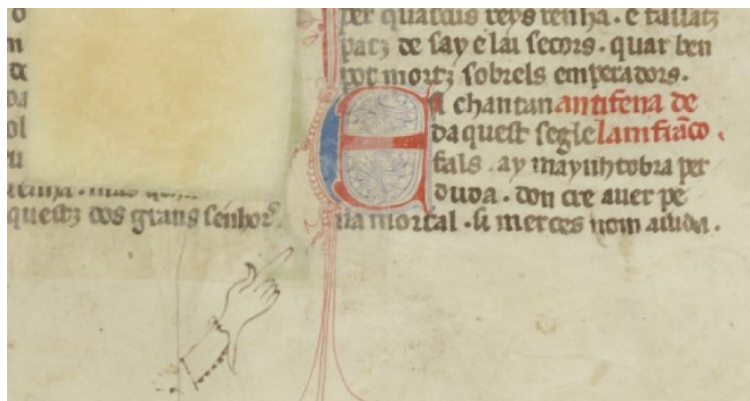 questz dos grans senhors
per quascus reys tenha. e
patz de say e lai secors. quar ben
pot mortz sobrels emperadors.
E chantan antifena de
daquest segle lamfrāco.
fals. ay tobra per
duda. don cre auer pe
na mortal. si merces nom aiuda.